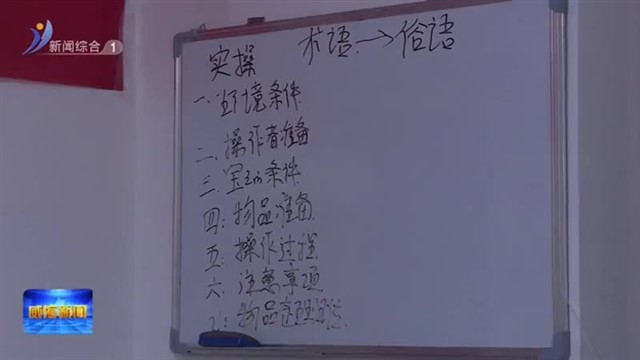 新闻综合 1
实操 术语→俗语
一、环境条件
二、操作者准备
三、宝宝条件
四:物品准备
五:操作过程
六:注意事项
七:物品
威海新闻